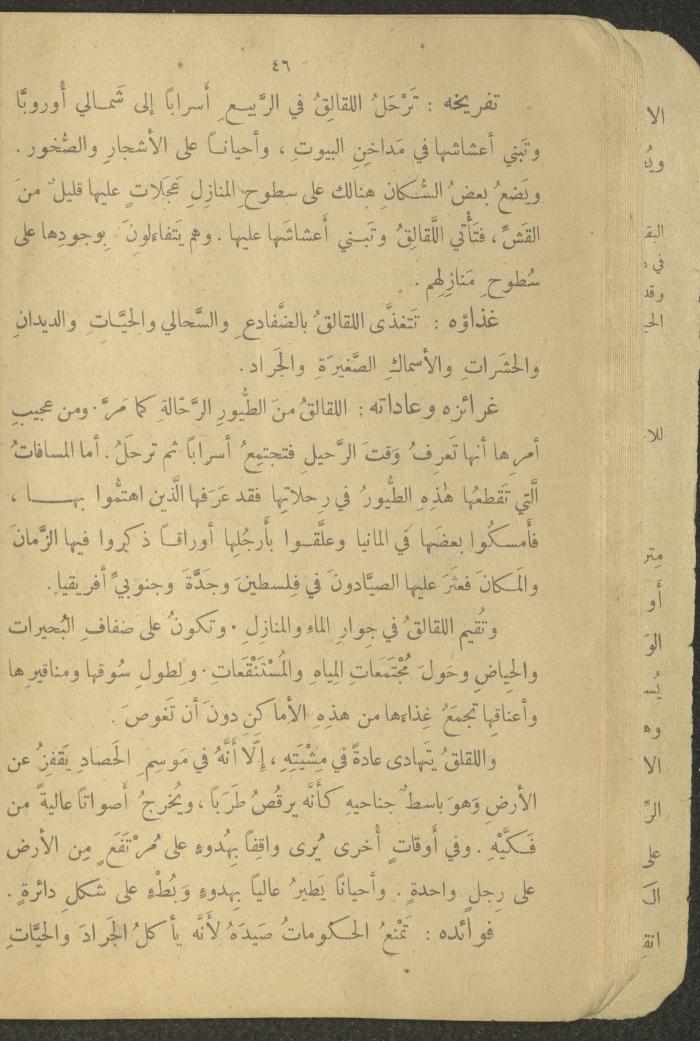 ٤٦
تفريخه : تَرْحَلُ اللقالِقُ في الرَّبيع أَسراباً إلى شَمالي أُوروبَّا
وتَبني أعشاشها في مَداخِنِ البيوتِ ، وأحياناً على الأشجارِ والصُّخور .
ويَضعُ بعضُ السُّكانِ هنالك على سطوحِ المنازلِ عَجَلاتٍ عليها قليلٌ منَ
القَشِّ ، فتَأْتي اللَّقالِقُ وتَبني أَعشاشَها عليها . وهم يَتفاءلونَ بوجودِها على
سُطوحِ مَنازِلِهِم .
غذاؤه : تَتغذَّى اللقالقُ بالضَّفادعِ والسَّحالي والحيَّاتِ والديدانِ
والحشَراتِ والأسماكِ الصَّغيرَةِ والجَراد .
غرائزه وعاداته : اللقالقُ منَ الطُّيورِ الرَّحّالةِ كما مَرَّ . ومن عجيبِ
أمرِها أنها تَعرِفُ وَقتَ الرَّحيلِ فتجتمِعُ أسراباً ثم ترحَلُ . أما المسافاتُ
الَّتي تَقطعُها هٰذِهِ الطُّيورُ في رحلاتِها فقد عَرَفها الَّذين اهتمُّوا بهـا ،
فأَمسكُوا بعضَها في المانيا وعلَّقوا بأَرجُلِها أوراقاً ذكروا فيها الزَّمانَ
والمَكانَ فعثَرَ عليها الصيَّادونَ في فِلسطينَ وجَدَّةَ وجنوبيِّ أفريقيا .
وتُقيم اللقالقُ في جِوارِ الماءِ والمنازِلِ . وتكونُ على ضفافِ البُحيرات
والحِياضِ وحَولَ مُجْتَمَعاتِ المِياهِ والمُسْتَنْقَعات . ولطولِ سُوقها ومناقيرِها
وأعناقِها تجمَعُ غِذاءها من هذِهِ الأماكن دونَ أن تَغوصَ .
واللقلقُ يتَهادى عادةً في مِشْيَتِهِ ، إلَّا أَنَّهُ في مَوسِمِ الحَصاد يَقفِزُ عن
الأرضِ وَهوَ باسطٌ جناحيهِ كأَنَّه يرقُصُ طَرَباً ، ويُخرجُ أَصواتاً عاليةً من
فَكَّيْهِ . وفي أَوقاتٍ أُخرى يُرى واقفِاً بِهُدوءٍ على مُرْتَفَعٍ مِن الأرض
على رِجلٍ واحدةٍ . وأحياناً يَطيرُ عالياً بِهدوءٍ وَبُطْءٍ على شكلِ دائرةٍ .
فوائده : تَمْنعُ الحكوماتُ صَيدَهُ لأَنَّه يأكلُ الجَرادَ والحَيَّات
الا
البقـ
في
وقد
للا
متر
أو
الوَ
يُسـ
وه
الا
الرِّ
على